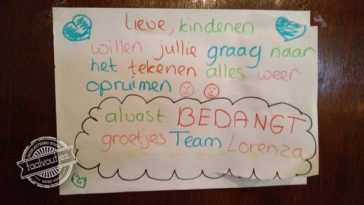 Lieve, kindenen
willen jullie graag naar
het tekenen alles weer
opruimen
alvast BEDANGT
groetjes Team Lorenza
taalvoutjes